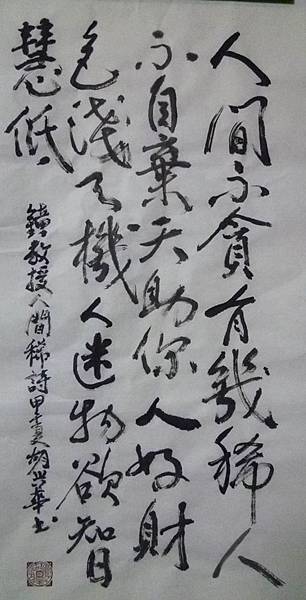 人間不貪有幾稀人
不自棄天助你人好財
色淺天機人迷物欲智
慧低
鐘教授人間稀詩甲夏炳華书